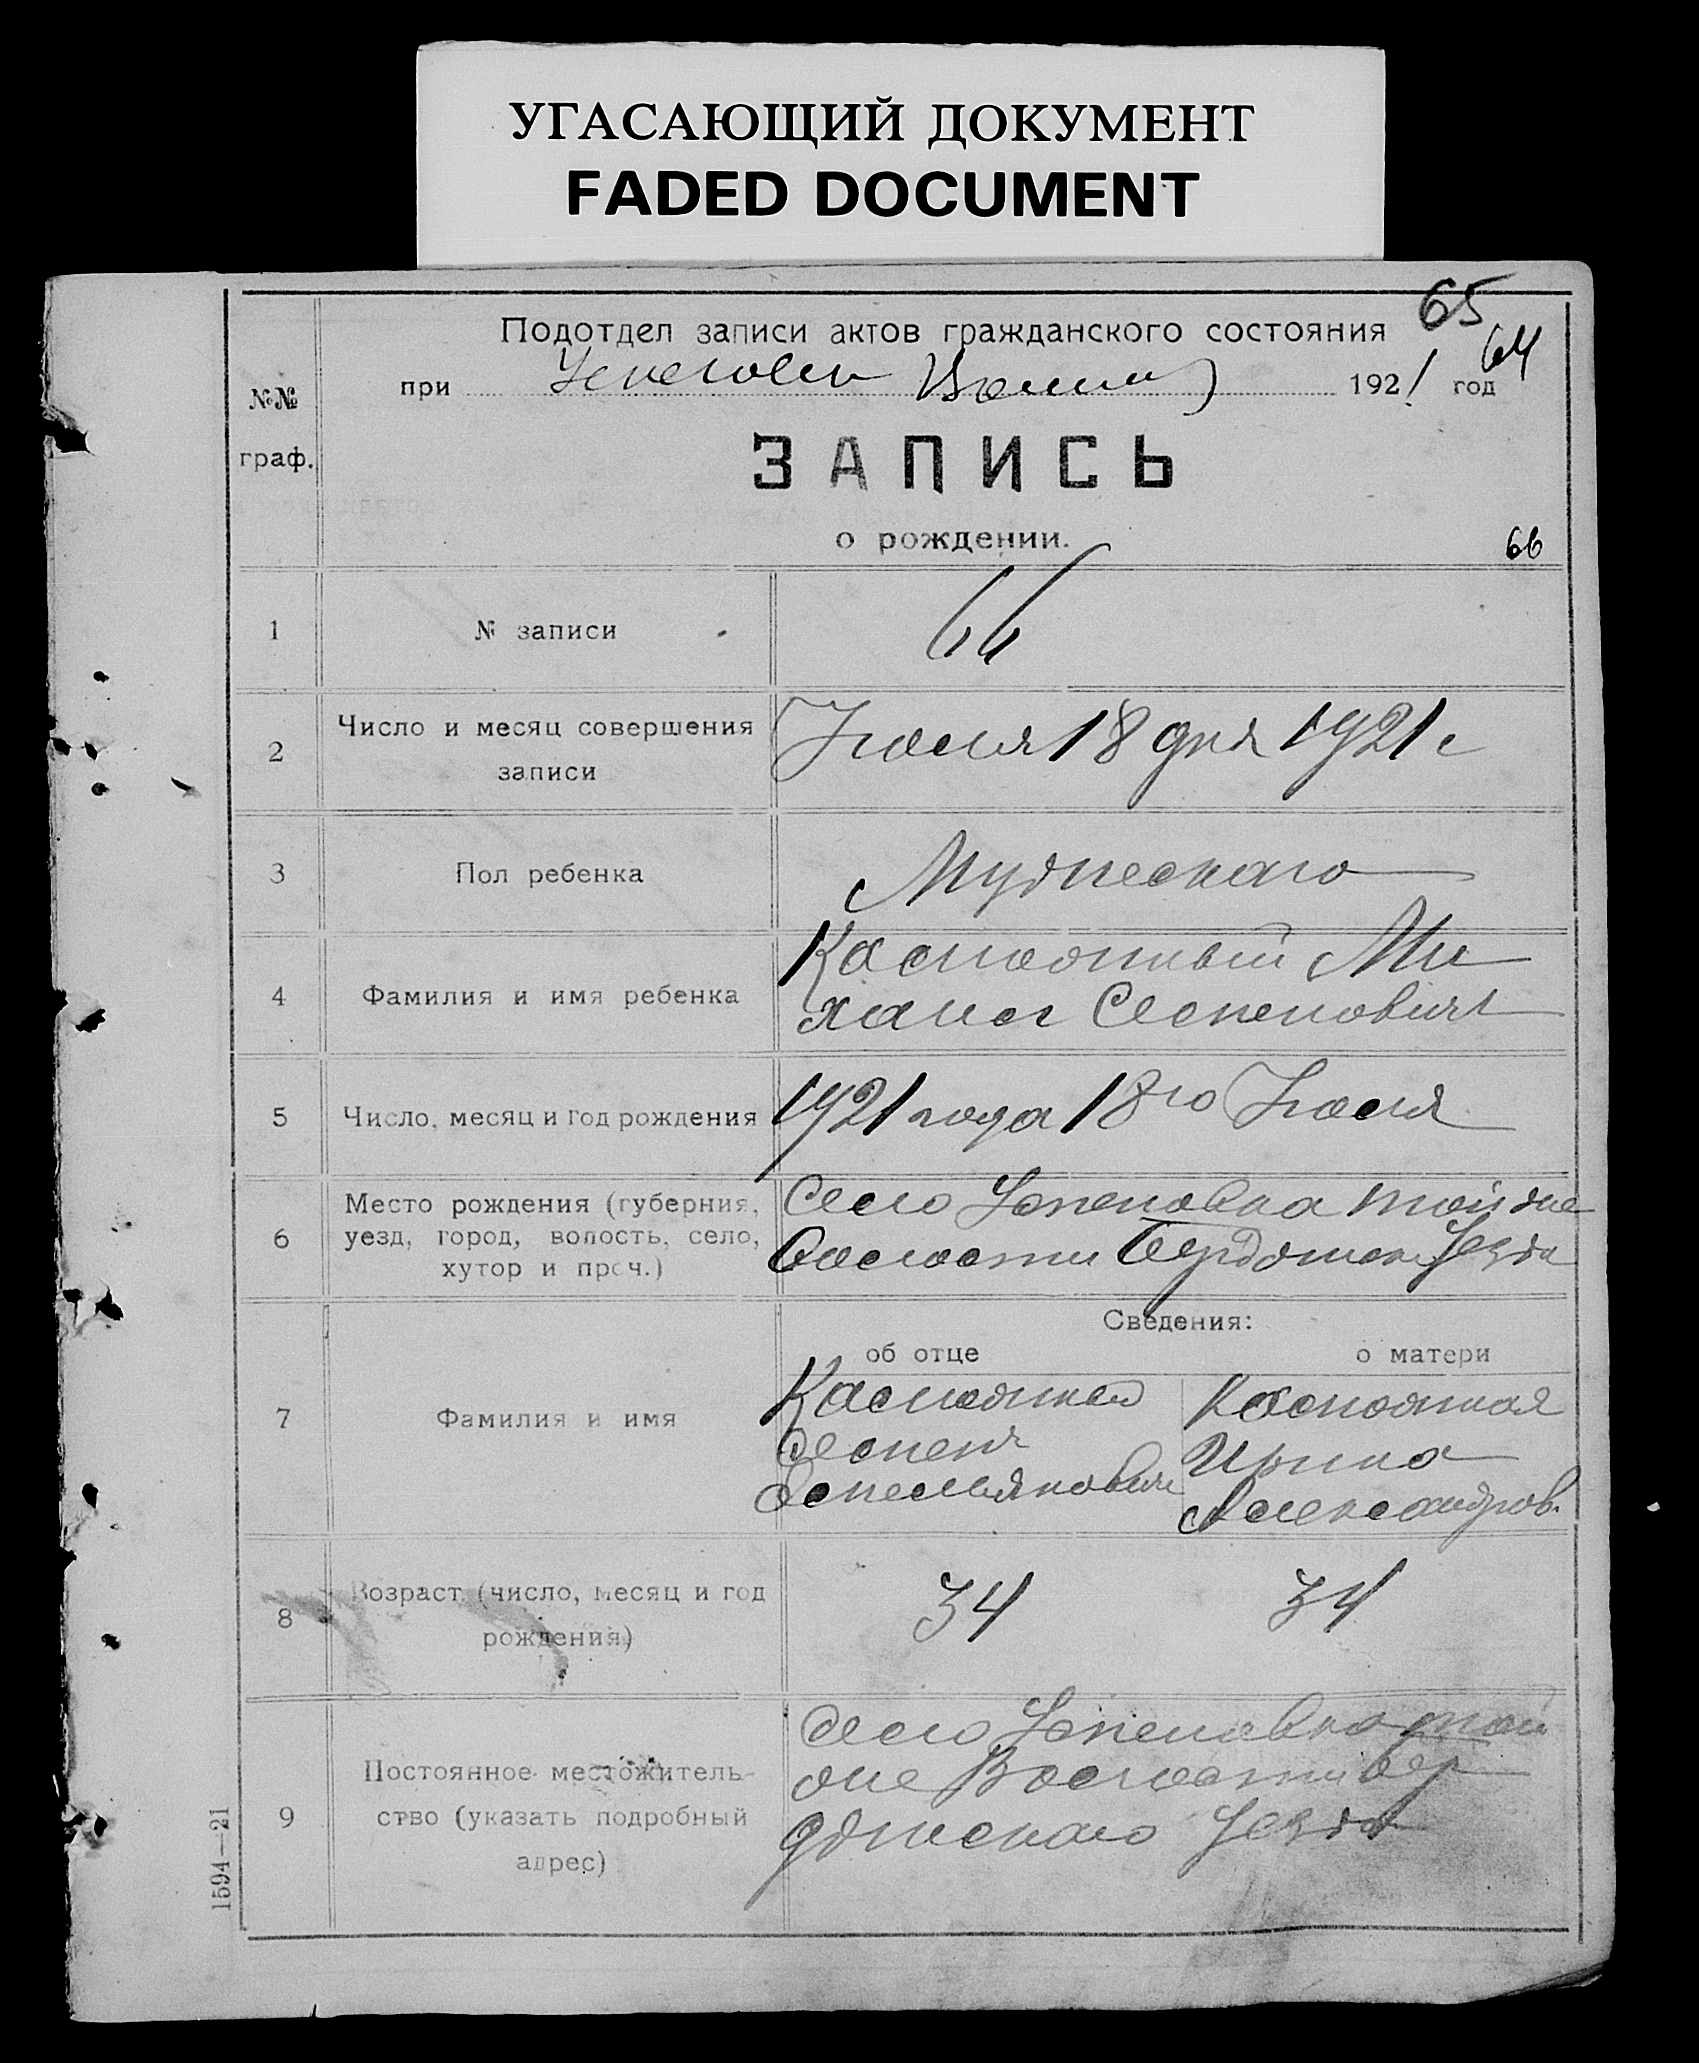 УГАСАЮЩИЙ ДОКУМЕНТ
FADED DOCUMENT
65
64
Подотдел записи актов гражданского состояния
при 1921 год
№№
граф.
ЗАПИСЬ
о рождении.
66
1 № записи 66
2 Число и месяц совершения
записи
18 дня 1921 г
3 Пол ребенка Мужескаго
4 Фамилия и имя ребенка
Ми
хаил
5 Число, месяц и год рождения 1921 года 18го
6 Место рождения (губерния,
уезд, город, волость, село,
хутор и проч.)
Село Успеновка той же
волости Уезда
Сведения:
об отце о матери
7 Фамилия и имя
Ирина
Александров.
8 Возраст (число, месяц и год
рождения)
34 34
9 Постоянное местожитель-
ство (указать подробный
адрес)
Село Успеновка той
же Волости Бер
дянскаго Уезда
1594—21